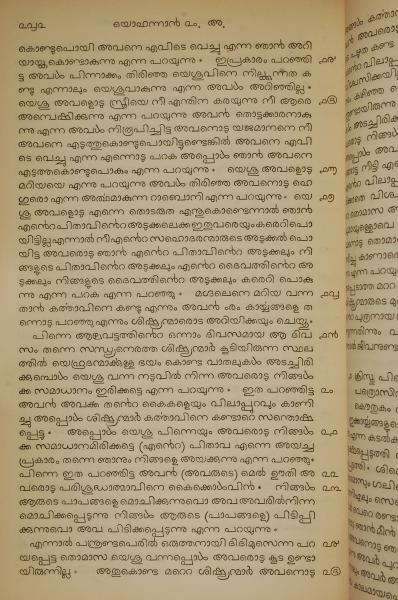 ൨൮൨ യൊഹന്നാൻ ൨ം. അ.
കൊണ്ടുപൊയി അവനെ എവിടെ വെച്ചു എന്ന ഞാൻ അറി
യായ്കകൊണ്ടാകുന്നു എന്ന പറയുന്നു * ഇപ്രകാരം പറഞ്ഞി ൧൪
ട്ട അവൾ പിന്നാക്കം തിരിഞ്ഞ യെശുവിനെ നില്ക്കുന്നത ക
ണ്ടു എന്നാലും യെശുവാകുന്നു എന്ന അവൾ അറിഞ്ഞില്ല *
യെശു അവളൊടു സ്ത്രീയെ നീ എന്തിന കരയുന്നു നീ ആരെ ൧൫
അന്വെഷിക്കുന്നു എന്ന പറയുന്നു അവൻ തൊട്ടക്കാരനാകു
ന്നു എന്ന അവൾ നിരൂപിച്ചിട്ട അവനൊട യജമാനനെ നീ
അവനെ എടുത്തുകൊണ്ടുപൊയിട്ടുണ്ടെങ്കിൽ അവനെ എവി
ടെ വെച്ചു എന്ന എന്നൊടു പറക അപ്പൊൾ ഞാൻ അവനെ
എടുത്തകൊണ്ടുപൊകും എന്ന പറയുന്നു * യെശു അവളൊട ൧൬
മറിയയെ എന്നു പറയുന്നു അവൾ തിരിഞ്ഞ അവനൊടു ഹെ
ഗുരൊ എന്ന അൎത്ഥമാകുന്ന റാബൊനി എന്ന പറയുന്നു * യെ ൧൭
ശു അവളൊടു എന്നെ തൊടരുത എന്തുകൊണ്ടെന്നാൽ ഞാൻ
എന്റെ പിതാവിന്റെ അടുക്കലെക്ക ഇതുവരെയും കരെറിപൊ
യിട്ടില്ല എന്നാൽ നീ എന്റെ സഹൊദരന്മാരുടെ അടുക്കൽ പൊ
യിട്ട അവരൊടു ഞാൻ എന്റെ പിതാവിന്റെ അടുക്കലും നി
ങ്ങളുടെ പിതാവിന്റെ അടുക്കലും എന്റെ ദൈവത്തിന്റെ അ
ടുക്കലും നിങ്ങളുടെ ദൈവത്തിന്റെ അടുക്കലും കരെറി പൊകു
ന്നു എന്ന പറക എന്ന പറഞ്ഞു * മഗ്ദലെനെ മറിയ വന്ന ൧൮
താൻ കൎത്താവിനെ കണ്ടു എന്നും അവൻ ൟ കാൎയ്യങ്ങളെ ത
ന്നൊടു പറഞ്ഞു എന്നും ശിഷ്യന്മാരൊട അറിയിക്കയും ചെയ്തു *
പിന്നെ ആഴ്ചവട്ടത്തിന്റെ ഒന്നാം ദിവസമായ ആ ദിവ ൧൯
സം തന്നെ സന്ധ്യനെരത്ത ശിഷ്യന്മാർ കൂടിയിരുന്ന സ്ഥല
ത്തിൽ യെഹൂദന്മാൎക്കുള്ള ഭയം കൊണ്ട വാതലുകൾ അടച്ചിരി
ക്കുമ്പൊൾ യെശു വന്ന നടുവിൽ നിന്ന അവരൊടു നിങ്ങൾ
ക്കു സമാധാനം ഇരിക്കട്ടെ എന്ന പറയുന്നു * ഇത പറഞ്ഞിട്ട ൨ം
അവൻ അവൎക്കു തന്റെ കൈകളെയും വിലാപ്പുറവും കാണി
ച്ചു അപ്പൊൾ ശിഷ്യന്മാർ കൎത്താവിനെ കണ്ടാറെ സന്തൊഷ
പ്പെട്ടു * അപ്പൊൾ യെശു പിന്നെയും അവരൊടു നിങ്ങൾ ൨൧
ക്കു സമാധാനമിരിക്കട്ടെ (എന്റെ) പിതാവ എന്നെ അയച്ച
പ്രകാരം തന്നെ ഞാനും നിങ്ങളെ അയക്കുന്നു എന്ന പറഞ്ഞു *
പിന്നെ ഇത പറഞ്ഞിട്ട അവൻ (അവരുടെ) മെൽ ഊതി അ ൨൨
വരൊടു പരിശുദ്ധാത്മാവിനെ കൈക്കൊൾവിൻ * നിങ്ങൾ ൨൩
ആരുടെ പാപങ്ങളെ മൊചിക്കുന്നുവൊ അവ അവരിൽനിന്ന
മൊചിക്കപ്പെടുന്നു നിങ്ങൾ ആരുടെ (പാപങ്ങളെ) പിടിപ്പി
ക്കുന്നുവൊ അവ പിടിക്കപ്പെടുന്നു എന്ന പറയുന്നു *
എന്നാൽ പന്ത്രണ്ടുപെരിൽ ഒരുത്തനായി ദിദിമുസെന്ന പറ ൨൪
യപ്പെട്ട തൊമാസ യെശു വന്നപ്പൊൾ അവരൊടു കൂട ഉണ്ടാ
യിരുന്നില്ല * അതുകൊണ്ട മറ്റെ ശിഷ്യന്മാർ അവനൊടു ൨൫